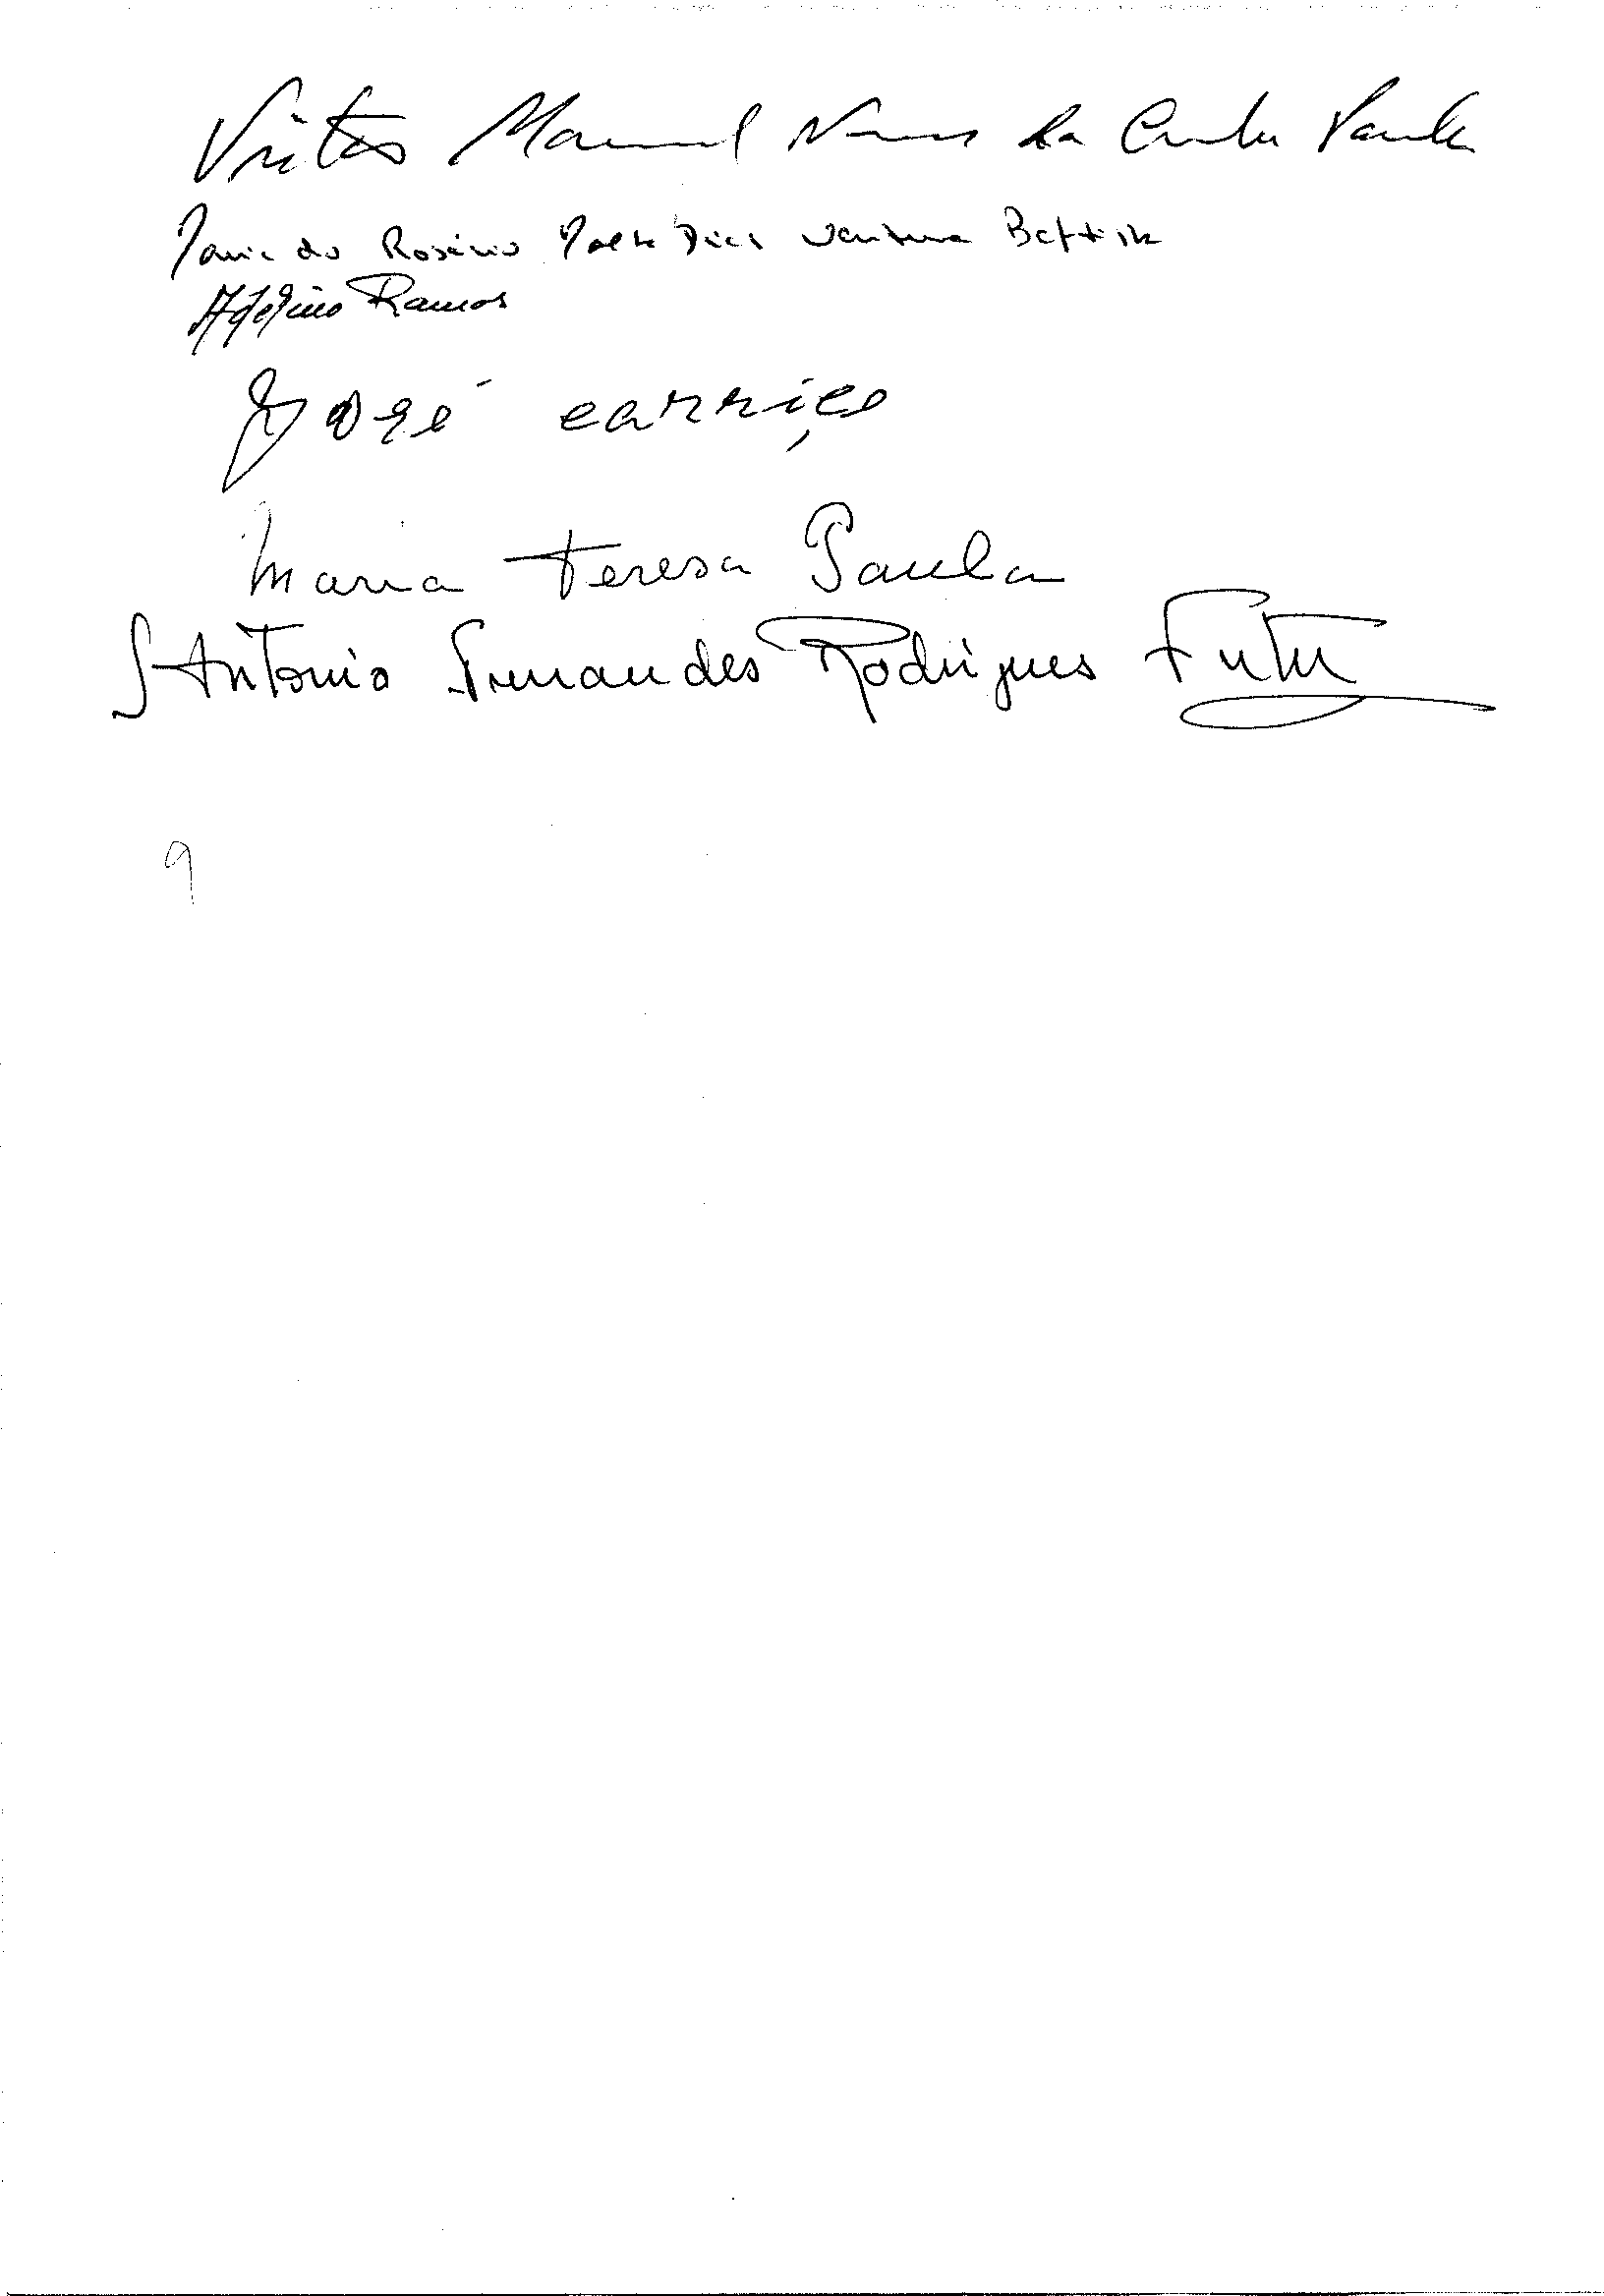 Victor Manuel Nunes da Cunha Paula
Maria do Rosário Dias Ventura Baptista
Adelino Ramos
José carriço
Maria Teresa Paula
António Fernandes Rodrigues
9